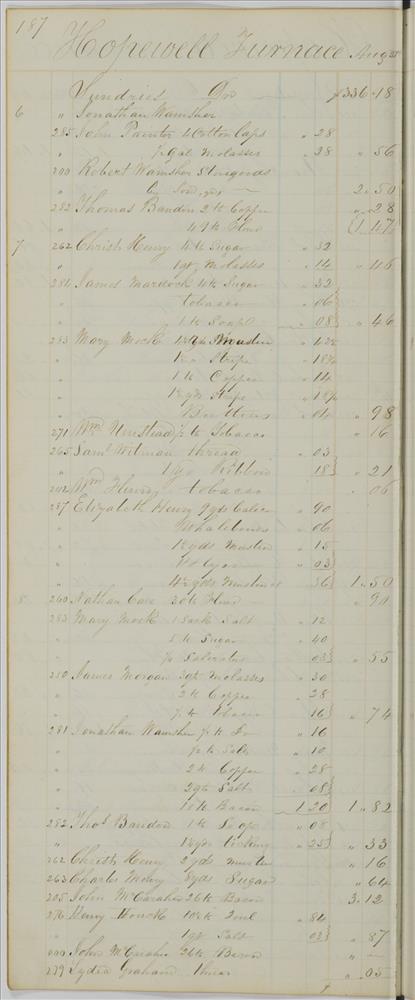 187
Hopewell Furnace Aug
Sundries Dr $336.18
6 " Jonathan Wamsher
285 John Painter 4 Cotton Caps " 28
" ½ Gal Molasses " 28 " 56
200 Robert Wamsher
" 2.50
282 Thomas Bandon 2 lb Coffee " 28
" 49 lb Flour 1.47
7 262 Christn Henry 4 lb Sugar " 32
" 1 qt Molasses " 14 " 46
284 James Murdock 4 lb Sugar " 32
" tobacco " 06
" 1 lb Soap " 08 " 46
283 Mary Mock Muslin
" Stripe
" 1 lb Coffee " 14
" yds Stripe
" Buttons " 04 " 98
271 Wm Umstead ½ lb Tobacco " 16
265 Saml Witman thread " 03
" Ribbon 18 " 21
242 Wm Henry tobacco " 06
287 Elizabeth Henry 9 yds Calico " 90
" Whalebones " 06
" 1½ yds muslin " 15
" " 03
" 4½ yds muslin 36 1.50
8 260 Nathan Care 30 lb Flour " 90
283 Mary Mock 1 Sack Salt " 12
" 5 lb Sugar " 40
" Saleratus 03 " 55
250 James Morgan 3 qts Molasses " 30
" 2 lb Coffee " 28
" lb Tobacco 16 " 74
281 Jonathan Wamsher lb Do " 16
" Salts " 10
" 2 lb Coffee " 28
" 2 qts Salt " 08
" 10 lb Bacon 1.20 1.82
282 Thos Bandon 1 lb Soap " 08
" 1½ yds ticking " 25 " 33
262 Christn Henry 2 yds muslin " 16
263 Charles Mcary 8 Sugar " 64
205 John McCaraher 26 lb Bacon 3.12
276 Henry Houck 10½ lb Veal " 84
" 1 qt Salt 03 " 87
John McCaraher 26 lb Bacon " —
279 Lydia Graham " 05